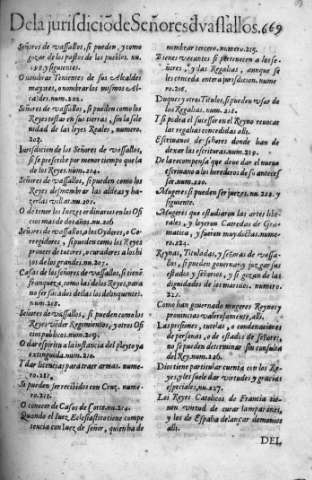 De la jurisdiciō de Señores d̄ vassallos. 669
Señores de vassallos, si pueden, y como
gozar de los pastos de los pueblos. nu.
199. y siguientes.
O nombrar Tenientes de sus Alcaldes
mayores, o nombrar los mismos Al-
caldes. num. 200.
Señores de vassallos, si pueden como los
Reyes testar en sus tierras, sin la sole
nidad de las leyes Reales, numero.
202.
Iurisdicion de los Señores de vassallos
si se prescribe por menor tiempo que la
de los Reyes. num. 204.
Señores de vassallos, si pueden como los
Reyes desmembrar las aldeas y ha-
zerlas villas. nu. 205.
O de tener los luezes ordinarios en los Ofi
cios mas de dos años. nu. 206.
Señores de vassallos, a los Oydores, o Co
rregidores, si pueden como los Reyes
proueer de tutores, o curadores a los hi
jos de los grandes. nu. 207.
Casas de los señores de vassallos, si tienē
franqueza, como las de los Reyes, para
no ser sacados dellas los delinquentes.
num. 208.
Señores de vassallos, si pueden como los
Reyes vender Regimientos, y otros Ofi
cios publicos. num. 209.
O dar espiritu a la instancia del pleyto ya
extinguida. num. 210.
Y dar licencias para traer armas. nume-
ro. 211.
Si pueden ser recibidos con Cruz. nume-
ro. 212.
O conocer de Casos de Corte. nu. 214.
Quando el luez Eclesiastico tiene compe
tencia con luez de señor, quien ha de
nombrar tercero. numero. 215.
Bienes vacantes si pertenecen a los se-
ñores, y las Regalias, aunque se
les conceda entera jurisdicion. nume
ro. 216.
Duques y otros Titulos, si pueden vsar de
las Regalias. num. 218.
Y si podra el sucessor en el Reyno reuocar
las regalias concedidas alli.
Escriuanos de señores donde han de
dexar las escrituras. num. 219.
De la recompensa que deue dar el nueuo
escriuano a los herederos de su anteces
sor. num. 220.
Mugeres si pueden ser juezes. nu. 222. y
siguiente.
Mugeres que estudiaron las artes libe-
rales, y leyeron Catredas de Gra-
matica, y fueron muy doctas. nume-
ro. 224.
Reynas, Tituladas, y señoras de vassa-
llos, si pueden gouernar y juzgar sus
estados y señorios, y si gozan de las
dignidades de los maridos. numero.
225.
Como han gouernado mugeres Reynos y
prouincias valerosamente. alli.
Las prisiones, tutelas, o condenaciones
de personas, o de estados de señores,
no se pueden determinar sin consulta
del Rey. num. 226.
Dios tiene particular cuenta con los Re-
yes, y les suele dar virtudes y gracias
especiales. nu. 227.
Los Reyes Catolicos de Francia tie-
nen virtud de curar lamparones,
y los de España de lançar demonios
alli.
DEL